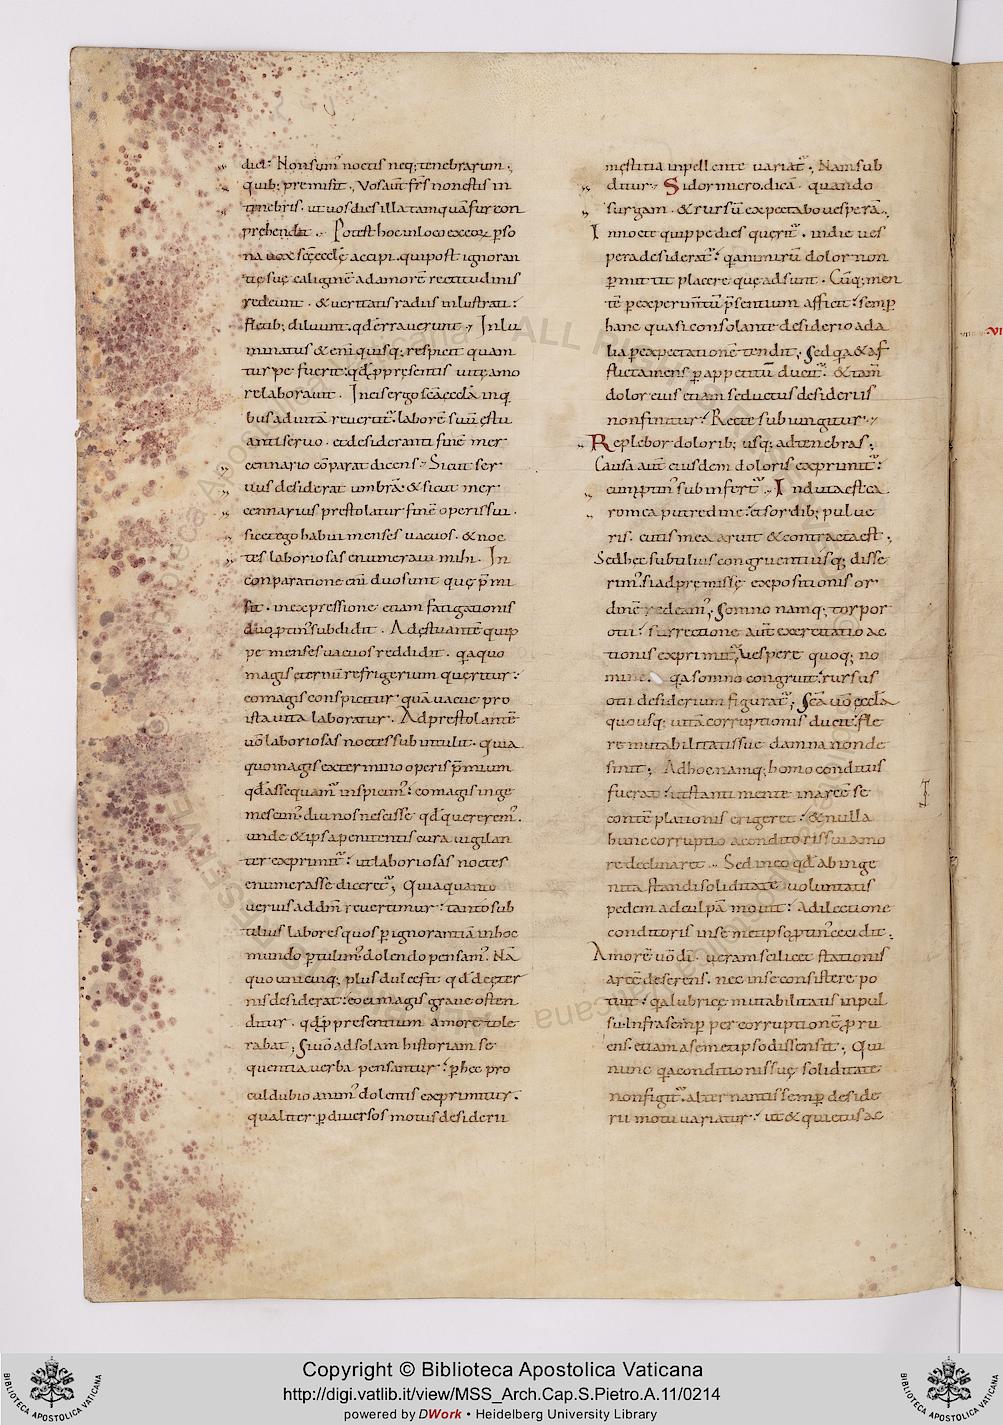 diei. Non sumꝰ noctis neq; tenebrarum.
quib; premisit. Vos aut̄ fr̄s non estis in
tenebris. ut vos dies illa tamquā fur con
prehendat. Potest hoc in loco ex eoꝝ ꝑso
na vox sc̄ę ęcclę accipi. qui post ignoran
tię suę caliginē ad amorē rectitudinis
redeunt. & veritatis radiis inlustrati.
fletib; diluunt. qđ erraverunt. Inlu
minatus & eni quisq; respicit quam
turpe fuerit. qđ ꝓ pręsentis vitę amo
re laboravit.
bus ad vitā revertit᷑. laborē suū ęstu
anti servo. et desideranti finē mer
cennario cōparat dicens. Sicut ser
vus desiderat umbrā. & sicut mer
cennarius prestolatur finē operis sui.
sic et ego habui menses vacuos. & noc
tes laboriosas enumeravi mihi. In
conparatione eni duo sunt quę p̄mi
sit. in expressione etiam fatigationis
duo ꝓtinꝰ subdidit. Ad ęstuantē quip
pe menses vacuos reddidit. qa quo
magis eternū refrigerium queritur.
eo magis conspicitur quā vacue pro
ista vita laboratur. Ad prestolantē
v̄o laboriosas noctes subintulit. quia
quo magis ex termino operis p̄mium
qđ assequamꝰ inspicimꝰ. eo magis inge
mescimꝰ diu nos nescisse qđ quereremꝰ.
unde & ipsa penitentis cura vigilan
ter exprimit᷑. ut laboriosas noctes
enumerasse diceret᷑; Quia quanto
verius ad dm̄ revertimur. tanto sub
tilius labores quos ꝑ ignorantiā in hoc
mundo ꝑtulimꝰ dolendo pensamꝰ. Nā
quo unicuiq; plus dulcescit qđ de ęter
nis desiderat. eo ei magis grave osten
ditur. qđ ꝓ presentium amore tole
rabat; Si v̄o ad solam historiam se
quentia verba pensantur. ꝑ hec pro
cul dubio animꝰ dolentis exprimitur.
qualiter ꝑ diversos motus desiderii
męstitia inpellente variat᷑. Nam sub
ditur. Si dormiero. dicā. quando
surgam. & rursū expectabo vesperā.
In nocte quippe dies querit᷑. in die ves
pera desiderat᷑. qa nimirū dolor non
ꝑmittit placere quę adsunt. Cūq; men
tē ꝑ experimtū p̄sentium afficit. semꝑ
hanc quasi consolante desiderio ad a
lia ꝑ expectationē tendit; Sed qa & af
flicta mens ꝑ appetitū ducit᷑. & tam̄
dolor eius etiam seductus desideriis
non finitur. Recte subiungitur.
Replebor dolorib; usq; ad tenebras;
Causa aut̄ eiusdem doloris exprimit᷑.
cum ꝓtinꝰ subinfert᷑. Induta est ca
ro mea putredine. et sordib; pulve
ris. cutis mea aruit & contracta est;
Sed hec subtilius congruentiusq; disse
rimꝰ. si ad premissę expositionis or
dinē redeamꝰ; Somno namq; torpor
otii. surrectione aut̄ exercitatio ac
tionis exprimit᷑. Vespere quoq; no
mine. qa somno congruit. rursus
otii desiderium figurat᷑; Sc̄a v̄o ęccła
quousq; vitā corruptionis ducit. fle
re mutabilitatis sue damna non de
sinit; Ad hoc namq; homo conditus
fuerat. ut stanti mente in arcē se
contēplationis erigeret. & nulla
hunc corruptio a conditoris sui amo
re declinaret. Sed in eo qđ ab inge
nita standi soliditate voluntatis
pedem ad culpā movit. a dilectione
conditoris in semetipso ꝓtinꝰ cecidit;
Amorē v̄o di. veram scilicet stationis
arcē deserens. nec in se consistere po
tuit. qa lubricę mutabilitatis inpul
su. infra se semꝑ per corruptionē ꝓru
ens. etiam a semetipso dissensit; Qui
nunc qa conditionis suę soliditate
non figit᷑. alternantis semꝑ deside
rii motu variatur. ut & quietus ac
Copyright © Biblioteca Apostolica Vaticana
http://digi.vatlib.it/view/MSS_Arch.Cap.S.Pietro.A.11/0214
powered by DWork • Heidelberg University Library
BIBLIOTECA APOSTOLICA VATICANA
BIBLIOTECA APOSTOLICA VATICANA